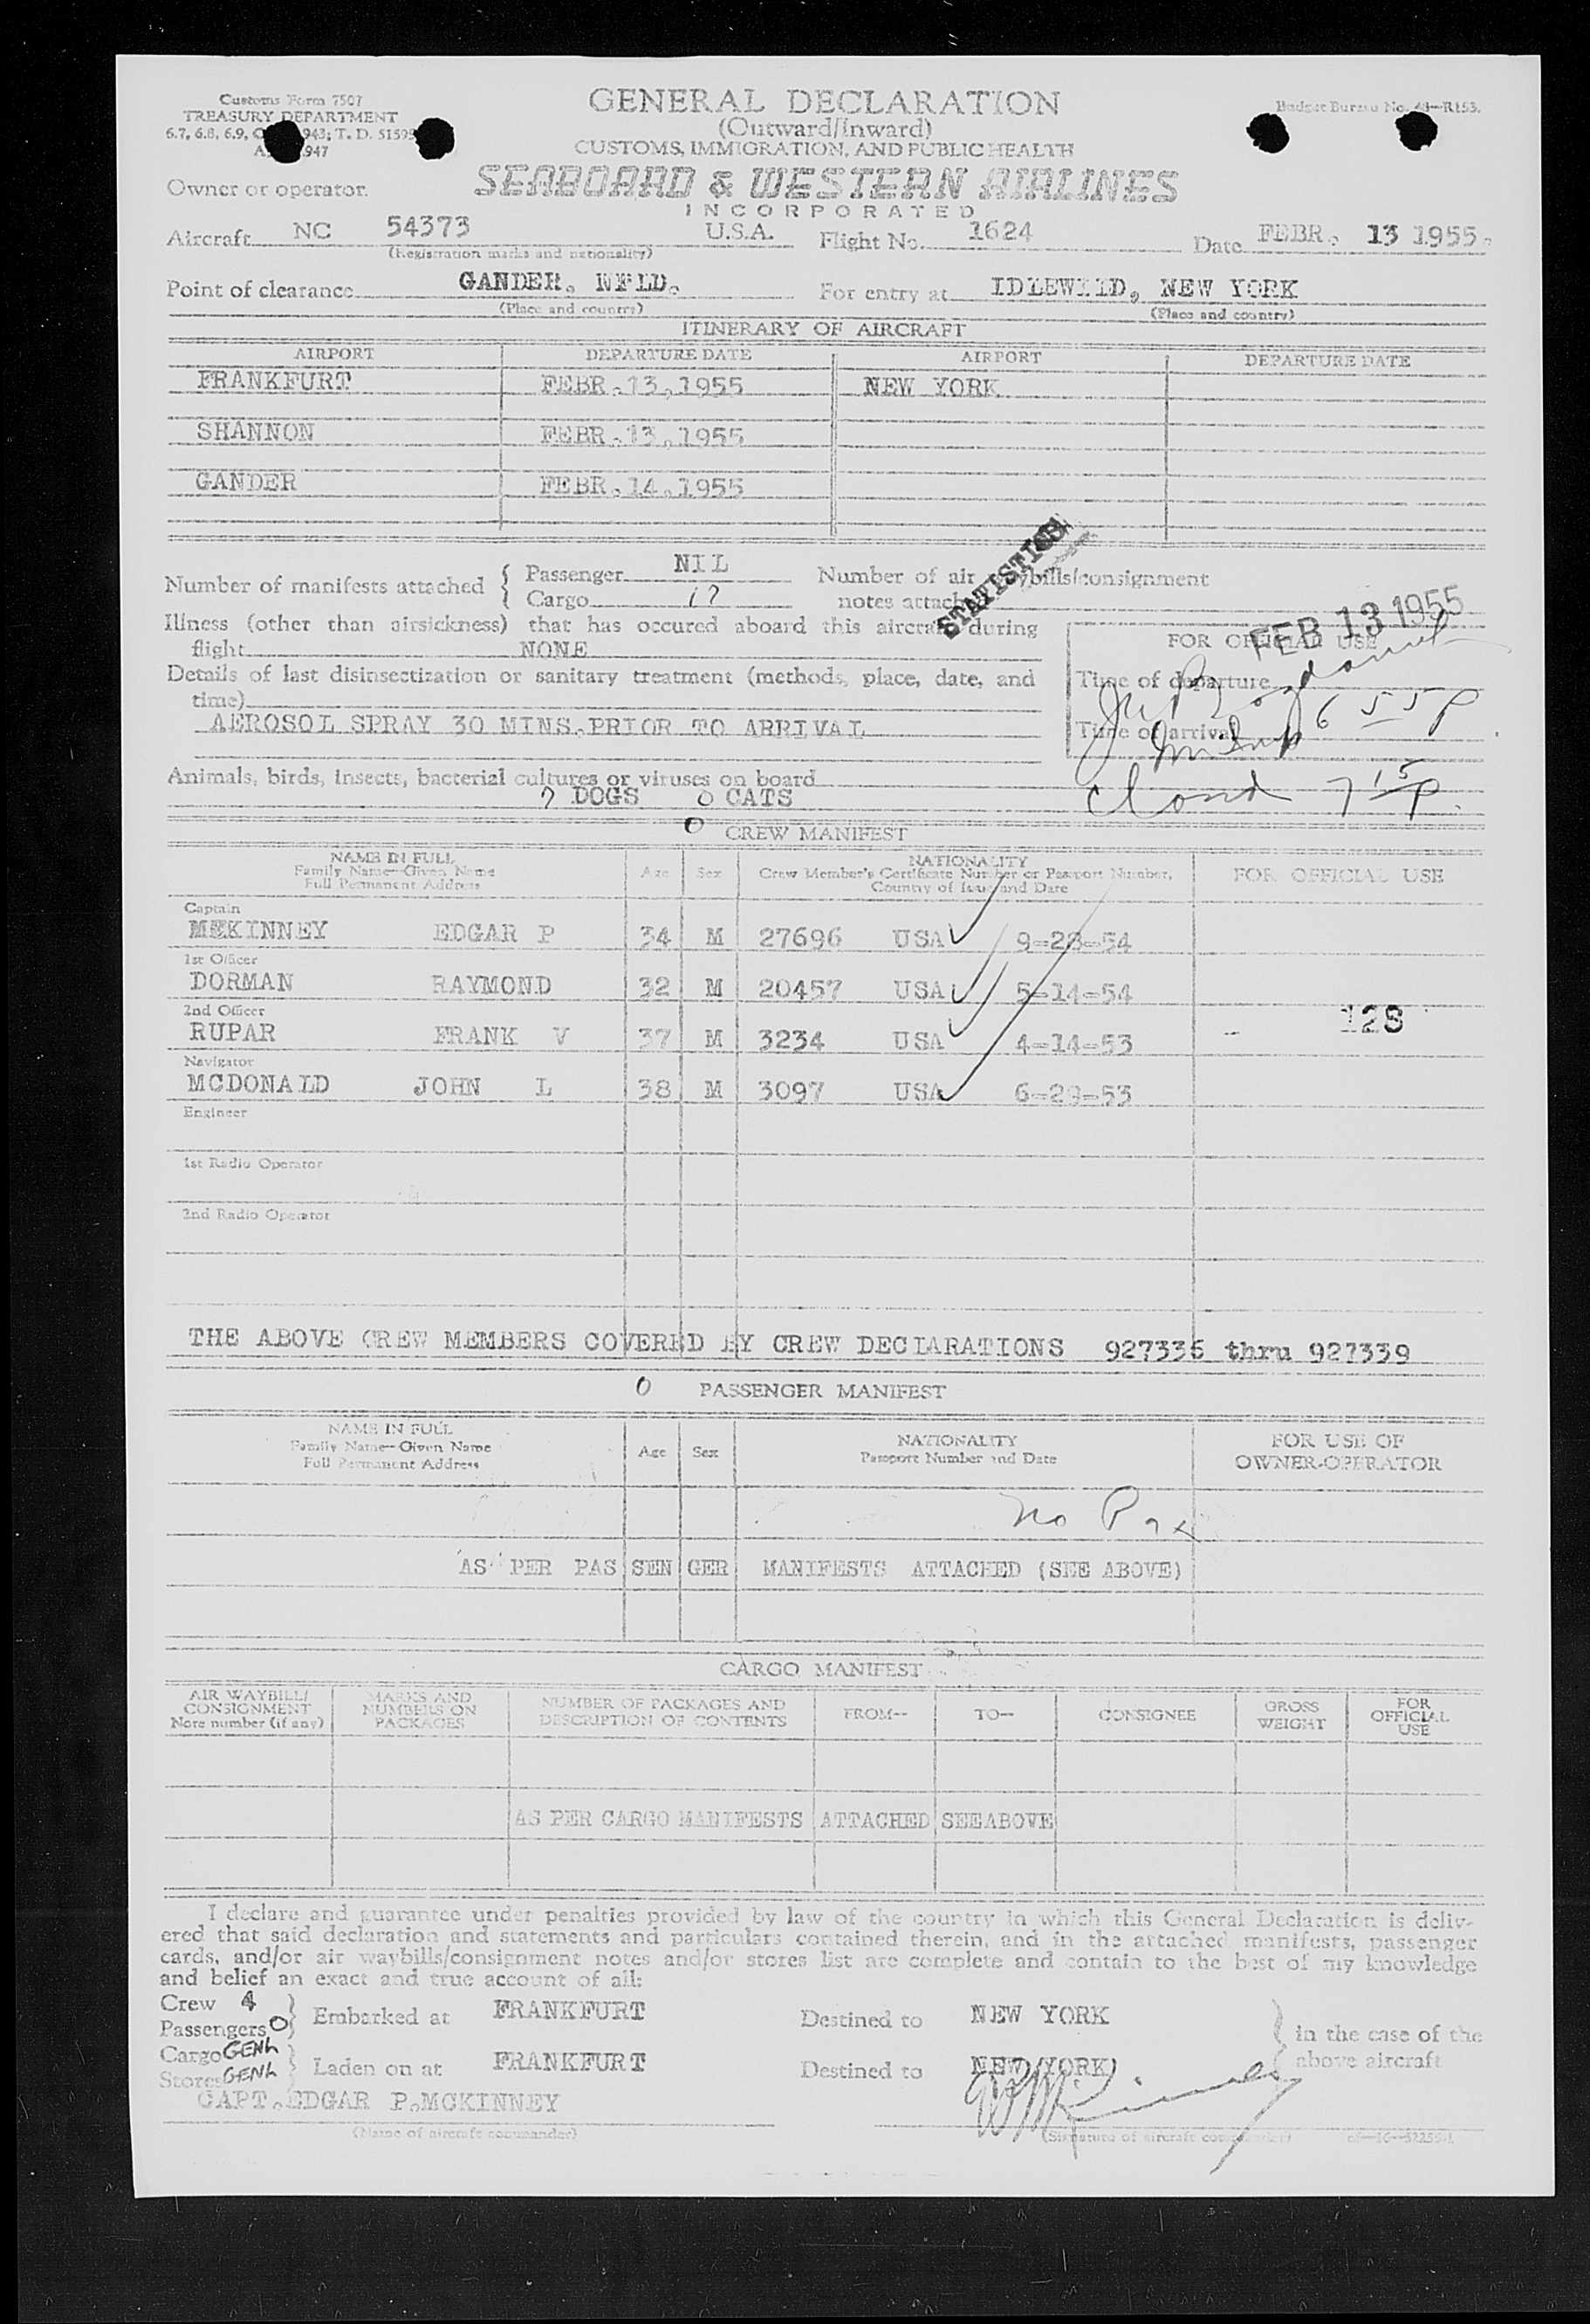 Customs Form 7507
TREASURY DEPARTMENT
GENERAL DECLARATION
(Outward/Inward)
CUSTOMS, IMMIGRATION, AND PUBLIC HEALTH
Budget Bureau No. 48—R153.
6.7, 6.8, 6.9, 943; T. D. 5159
947
Owner or operator
SEABOARD & WESTERN AIRLINES
INCORPORATED
Aircraft NC 54373 U.S.A. Flight No. 1624 Date FEBR. 13 1955.
(Registration marks and nationality)
Point of clearance GANDER, NFLD. For entry at IDLEWILD, NEW YORK
(Place and country) (Place and country)
ITINERARY OF AIRCRAFT
AIRPORT DEPARTURE DATE AIRPORT DEPARTURE DATE
FRANKFURT FEBR.13,1955 NEW YORK
SHANNON FEBR.13,1955
GANDER FEBR.14.1955
Number of manifests attached { Passenger NIL
Cargo 17
Number of air waybills/consignment
notes attached
STATISTICAL
Illness (other than airsickness) that has occured aboard this aircraft during
flight NONE
FEB 13 1955
FOR OFFICIAL USE
Details of last disinsectization or sanitary treatment (methods, place, date, and
time)
AEROSOL SPRAY 30 MINS.PRIOR TO ARRIVAL
Time of departure
Time of arrival 6 55 P
Animals, birds, insects, bacterial cultures or viruses on board
7 DOGS 0 CATS
7 15 P.
0 CREW MANIFEST
NAME IN FULL
Family Name—Given Name
Full Permanent Address
Age Sex
NATIONALITY
Crew Member's Certificate Number or Passport Number,
Country of Issue and Date
FOR OFFICIAL USE
Captain
MEKINNEY EDGAR P 34 M 27696 USA 9-28-54
1st Officer
DORMAN RAYMOND 32 M 20457 USA 5-14-54
2nd Officer
RUPAR FRANK V 37 M 3234 USA 4-14-53
128
Navigator
MCDONALD JOHN L 38 M 3097 USA 6-29-53
Engineer
1st Radio Operator
2nd Radio Operator
THE ABOVE CREW MEMBERS COVERED BY CREW DECLARATIONS 927336 thru 927339
0 PASSENGER MANIFEST
NAME IN FULL
Family Name—Given Name
Full Permanent Address
Age Sex
NATIONALITY
Passport Number and Date
FOR USE OF
OWNER-OPERATOR
No Pax
AS PER PAS SEN GER MANIFESTS ATTACHED (SEE ABOVE)
CARGO MANIFEST
AIR WAYBILL/
CONSIGNMENT
Note number (if any)
MARKS AND
NUMBERS ON
PACKAGES
NUMBER OF PACKAGES AND
DESCRIPTION OF CONTENTS
FROM—
TO—
CONSIGNEE
GROSS
WEIGHT
FOR
OFFICIAL
USE
AS PER CARGO MANIFESTS ATTACHED SEEABOVE
I declare and guarantee under penalties provided by law of the country in which this General Declaration is deliv-
ered that said declaration and statements and particulars contained therein, and in the attached manifests, passenger
cards, and/or air waybills/consignment notes and/or stores list are complete and contain to the best of my knowledge
and belief an exact and true account of all:
Crew 4
Passengers 0 } Embarked at FRANKFURT Destined to NEW YORK
Cargo GENL
Stores GENL } Laden on at FRANKFURT Destined to NEW YORK
} in the case of the
above aircraft
CAPT.EDGAR P.MCKINNEY
(Name of aircraft commander) (Signature of aircraft commander)